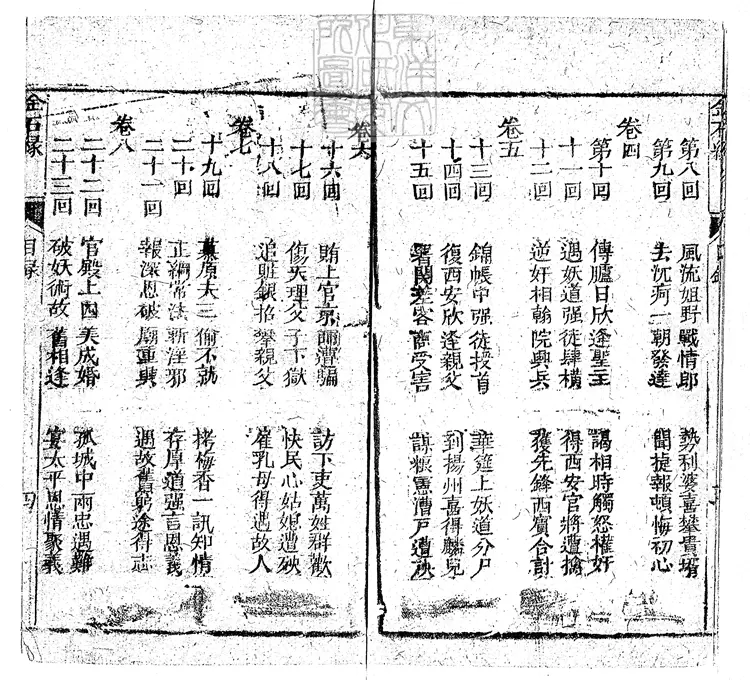 金石緣
目錄
第八回 風流姐野戰情郎 勢利婆喜攀貴壻
第九回 去沉疴一朝發達 聞捷報頓悔初心
卷四
第十回 傳臚日欣逢聖主 謁相時觸怒權奸
十一回 遇妖道强徒肆橫 得西安官將遭擒
十二回 逆奸相翰院興兵 獲先鋒西賓合計
卷五
十三回 錦帳中强徒授首 華筵上妖道分尸
十四回 復西安欣逢親父 到揚州喜得麟兒
十五回 署閩差客商受害 謀糧憲漕戶遭殃
卷六
十六回 賄上官京師遭騙 訪下吏萬姓群歡
十七回 傷天理父子下獄 快民心姑媳遭殃
十八回 追賍銀掐攀親父 催乳母得遇故人
卷七
十九回 原夫三偷不就 拷梅香一訊知情
二十回 正綱常法斬淫邪 存厚道强言恩義
二十一回 報深恩破廟重興 遇故舊窮途得志
卷八
二十二回 官殿上四美成婚 孤城中兩忠遇難
二十三回 破妖術故舊相逢 宴太平恩情聚義
金石緣
目録
四